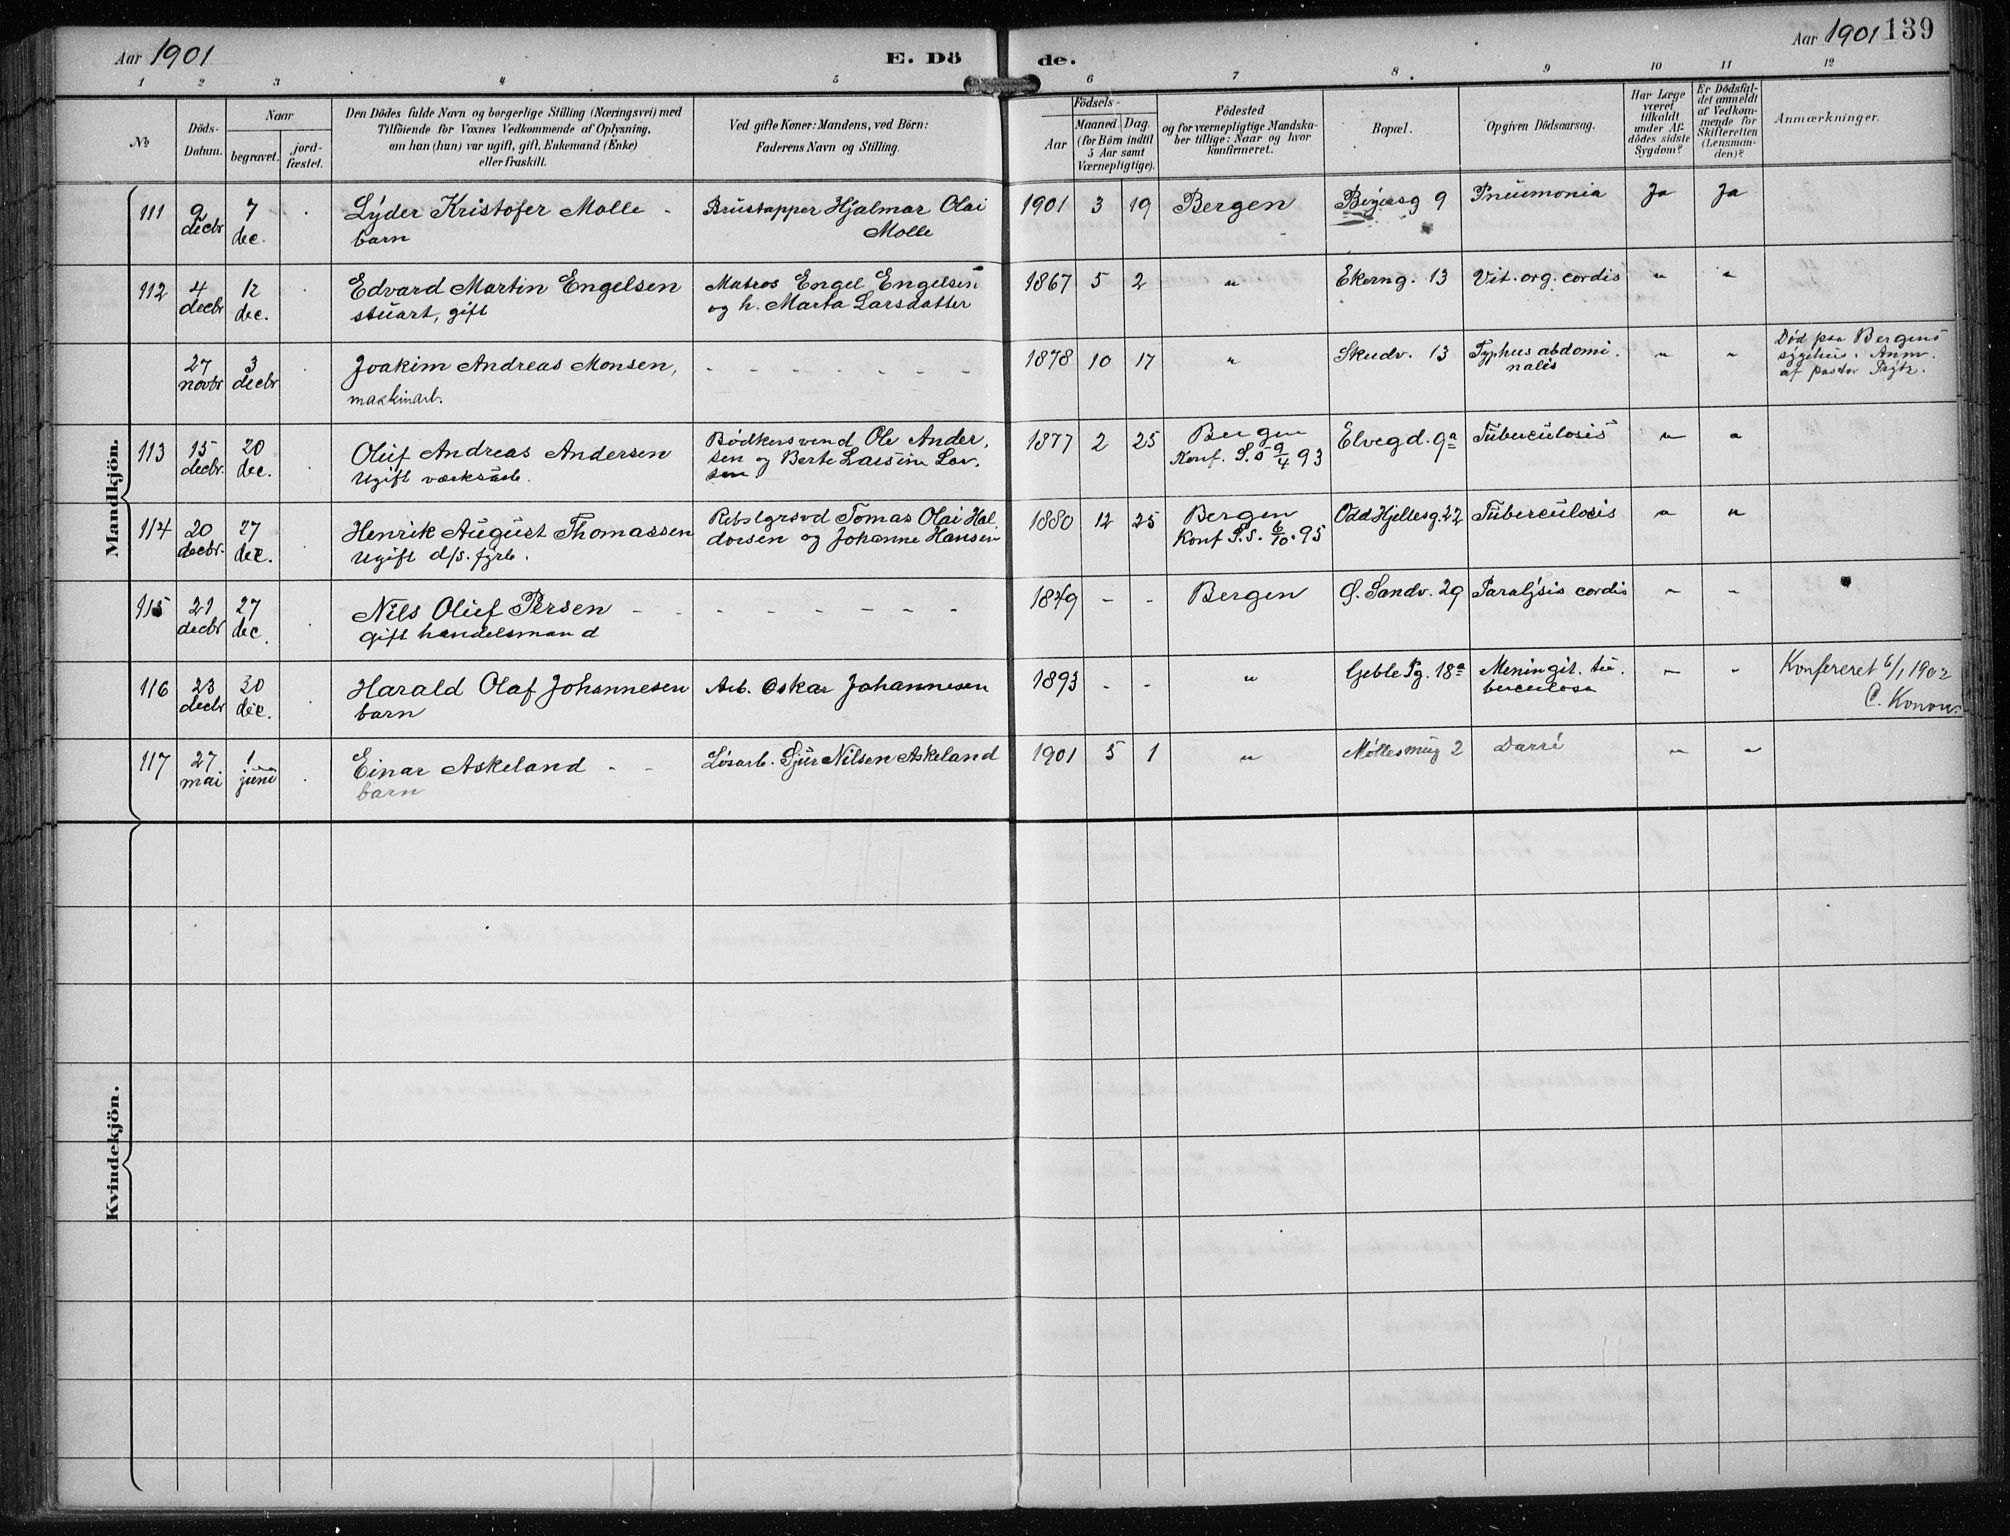 Aar 1901
E. Dö
de.
Aar 1901
139
1 2 3 4 5 6 7 8. 9 10 11 12
№
Döds-
Datum.
Naar
begravet.
jord-
fæstet.
Den Dödes fulde Navn og borgerlige Stilling (Næringsvei) med
Tilföiende for Voxnes Vedkommende af Oplysning,
om han (hun) var ugift, gift, Enkemand (Enke)
eller fraskilt.
Ved gifte Koner: Mandens, ved Börn:
Faderens Navn og Stilling.
Födsels-
Aar
Maaned Dag.
(for Börn indtil
5 Aar samt
Værnepligtige).
Födested
og for værnepligtige Mandska-
ber tillige: Naar og hvor
konfirmeret.
Bopæl.
Opgiven Dödsaarsag.
Har Læge
været
tilkaldt
under Af-
dödes sidste
Sygdom?
Er Dödsfal-
det anmeldt
af Vedkom-
mende for
Skifteretten
(Lensman-
den)?
Anmærkninger.
Mandkjön.
111
9
decbr
7
dec.
Lyder Kristofer Molle -
barn
Brustapper Hjalmar Olai
Molle
1901 3 19
Bergen
9
Pneumonia
Ja
Ja
112
4
decbr
12
dec.
Edvard Martin Engelsen
stuart, gift
Matros Engel Engelsen
og h. Marta Larsdatter
1867 5 2
"
Ekerng. 13
Vit. org. cordis
"
"
27
novbr
3
decbr
Joakim Andreas Monsen,
maskinarb.
- - - - - - - -
1878 10 17
"
Skudv. 13
Typhus abdomi
nalis
"
"
Død paa Bergens
sygehus. Anm.
af pastor
113
15
decbr
20
dec.
Oluf Andreas Andersen
Ugift
Bødkersvend Ole Ander.
sen og Berte
1877 2 25
Bergen
Konf. 9/4 93
Elvegd. 9a
Tuberculosis
"
"
114
20
decbr.
27
dec.
Henrik August Thomassen
Ugift d/s. fyrb.
Tomas Olai Hal.
dorsen og Johanne Hansen
1880 12 25
Bergen
Konf 6/10. 95
Odd Hjellesg. 22
Tuberculosis
"
"
115
21
decbr
27
dec.
Nils Oluf Persen -
gift handelsmand
- - - - - - -
1849 - -
Bergen
Sandv. 29
Paralysis cordis
"
"
116
23
decbr
30
dec.
Harald Olaf Johannesen
barn
Arb. Oskar Johannesen
1893 - -
"
Geble Pg. 18a
Meningit. tu.
berculosa
"
"
Konfereret 6/1 1902
C. Konow.
117
27
mai
1
juni
Einar Askeland - -
barn
Løsarb. Sjur Nilsen Askeland
1901 5 1
"
Møllesmug 2
Darré
"
"
Kvindekjön.